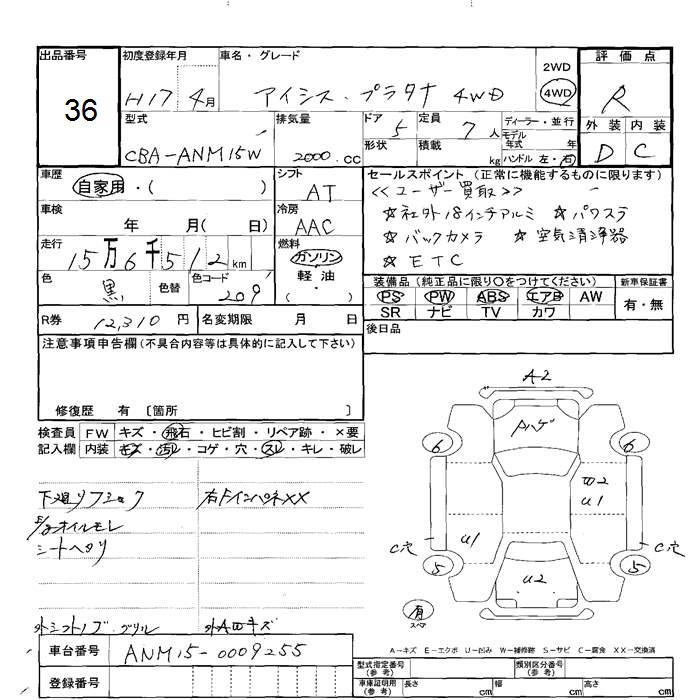 出品番号 36
初度登録年月 H17 4月
車名・グレード アイシス・プラタナ 4WD
2WD
4WD
評価点 R
外装 D 内装 C
型式 CBA-ANM15W
排気量 2000.cc
ドア 5 定員 7人
形状 積載 kg
ディーラー・並行
モデル年式 年
ハンドル 左・右
車歴 自家用・( )
シフト AT
セールスポイント (正常に機能するものに限ります)
<<ユーザー買取>>
☆社外18インチアルミ ☆パワスラ
☆バックカメラ ☆空気清浄器
☆ETC
車検 年 月( 日)
冷房 AAC
走行 15万6千512km
燃料 ガソリン
軽油
( )
色 黒 色替 色コード 209
装備品 (純正品に限り○をつけてください)
PS PW ABS エアB AW
SR ナビ TV カワ
新車保証書
有・無
R券 12,310円 名変期限 月 日
後日品
注意事項申告欄(不具合内容等は具体的に記入して下さい)
修復歴 有 〔箇所 〕
検査員 FW キズ・飛石・ヒビ割・リペア跡・×要
記入欄 内装 キズ・汚レ・コゲ・穴・スレ・キレ・破レ
下廻リフショク 右FインパネXX
E/gオイルモレ
シートヘタリ
外シフトノブ.グリル
A2
6
6
U1
U1
C穴
C穴
5
5
U2
有
スペア
A-キズ E-エクボ U-凹み W-補修跡 S-サビ C-腐食 XX-交換済
車台番号 ANM15-0009255
登録番号
型式指定番号 (参考) 類別区分番号 (参考)
車庫証明用 (参考) 長さ cm 幅 cm 高さ cm